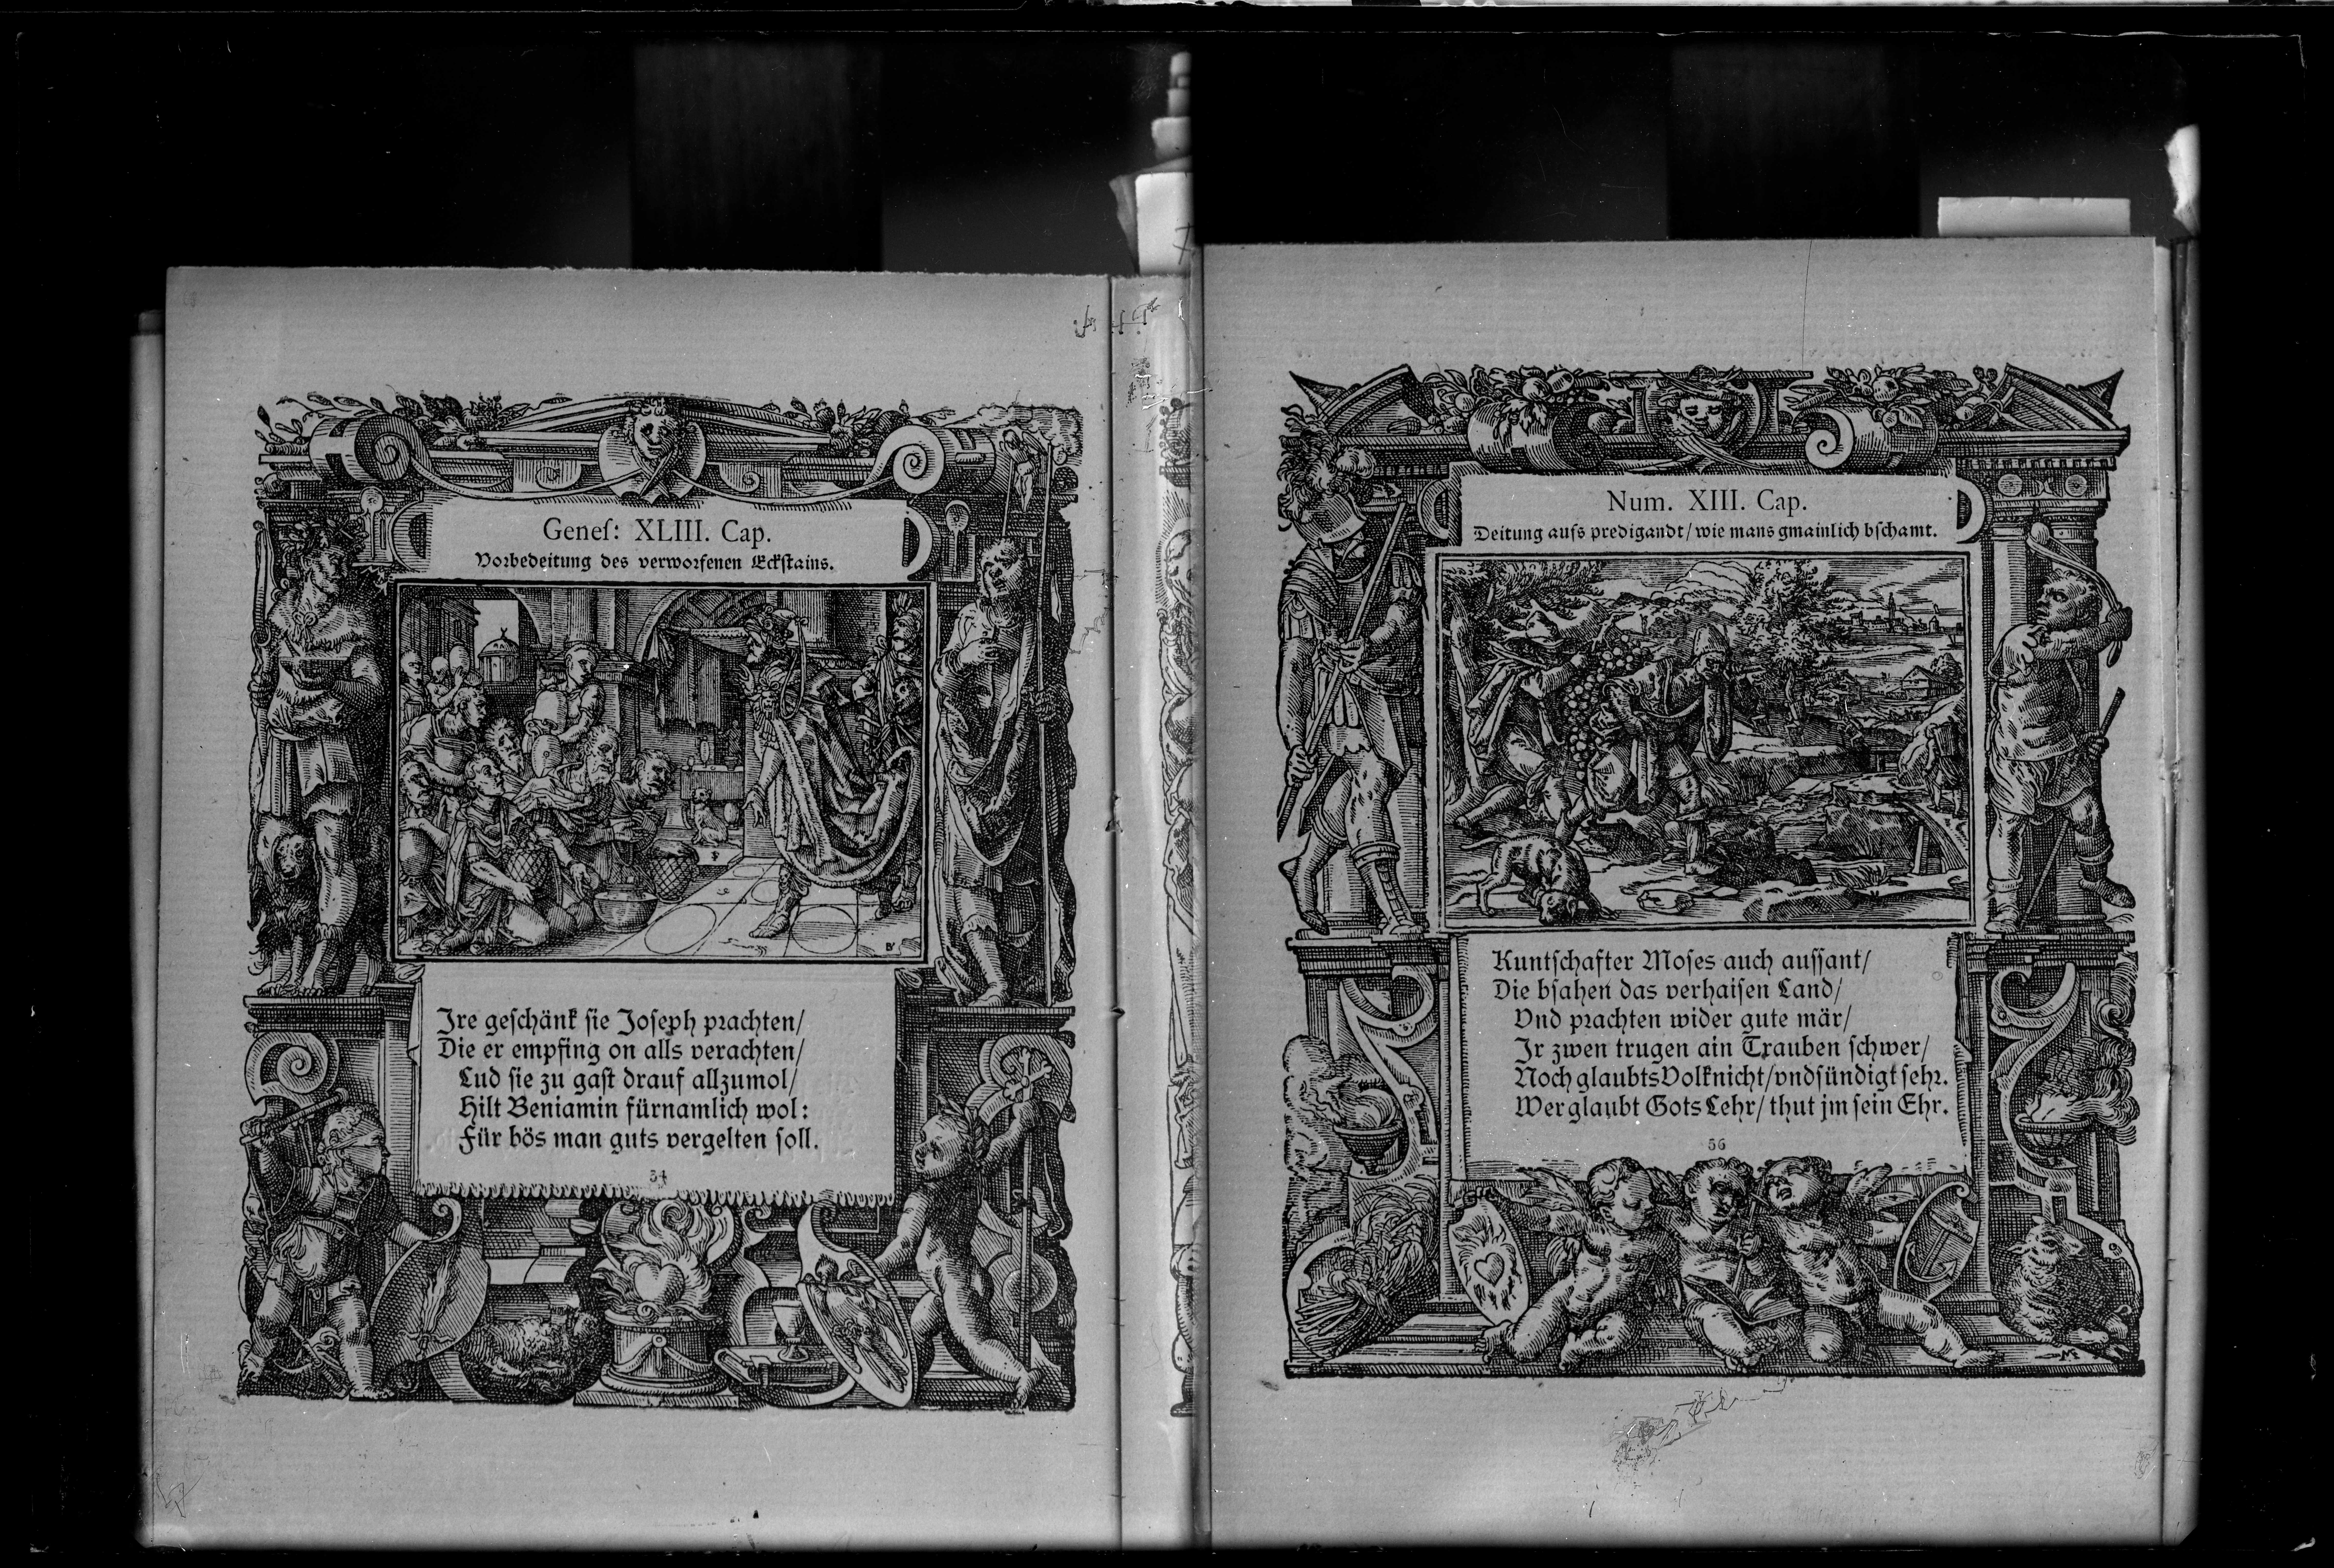 Geneſ: XLIII. Cap.
Vorbedeitung des verworfenen Eckſtains.
Jre geſchänk ſie Joſeph prachten/
Die er empfing on alls verachten/
Lud ſie zu gaſt drauf allzumol/
Hilt Beniamin fürnamlich wol:
Für bös man guts vergelten ſoll.
34
Num. XIII. Cap.
Deitung auſs predigandt/ wie mans gmainlich bſchamt.
Kuntſchafter Moſes auch auſſant/
Die bſahen das verhaiſen Land/
Vnd prachten wider gute mär/
Jr zwen trugen ain Trauben ſchwer/
Noch glaubts Volk nicht/ vnd ſündigt ſehr.
Wer glaubt Gots Lehr/ thut jm ſein Ehr.
56